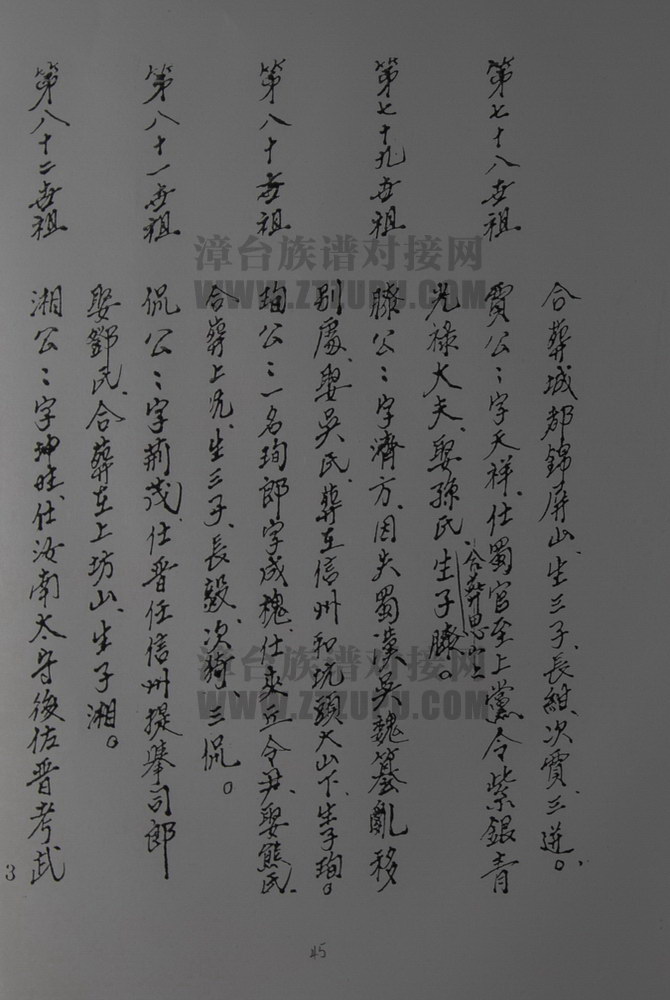 合葬城都錦屏山、生三子、長紺、次賈、三迸。
第七十八世祖
賈公〻字天祥、仕蜀官至上黨令紫銀青
光祿大夫、娶孫氏生子滕。
合葬思山上
第七十九世祖
滕公〻字濟方、因失蜀漢吳魏篡亂移
别處、娶吳氏、葬在信州和坑頭大山下、生子珣。
第八十世祖
珣公〻一名珣郎字成槐、仕乘丘令尹、娶熊氏、
合葬上坑、生三子、長毅、次猗、三侃。
第八十一世祖
侃公〻字荊茂、仕晋任信州提舉司郎
娶鄧氏、合葬在上坊山、生子湘。
第八十二世祖
湘公〻字坤旺、仕汝南太守後佐晋考武
漳台族谱对接网
WWW.ZZZUPU.COM
漳台族谱对接网
WWW.ZZZUPU.COM
3
45